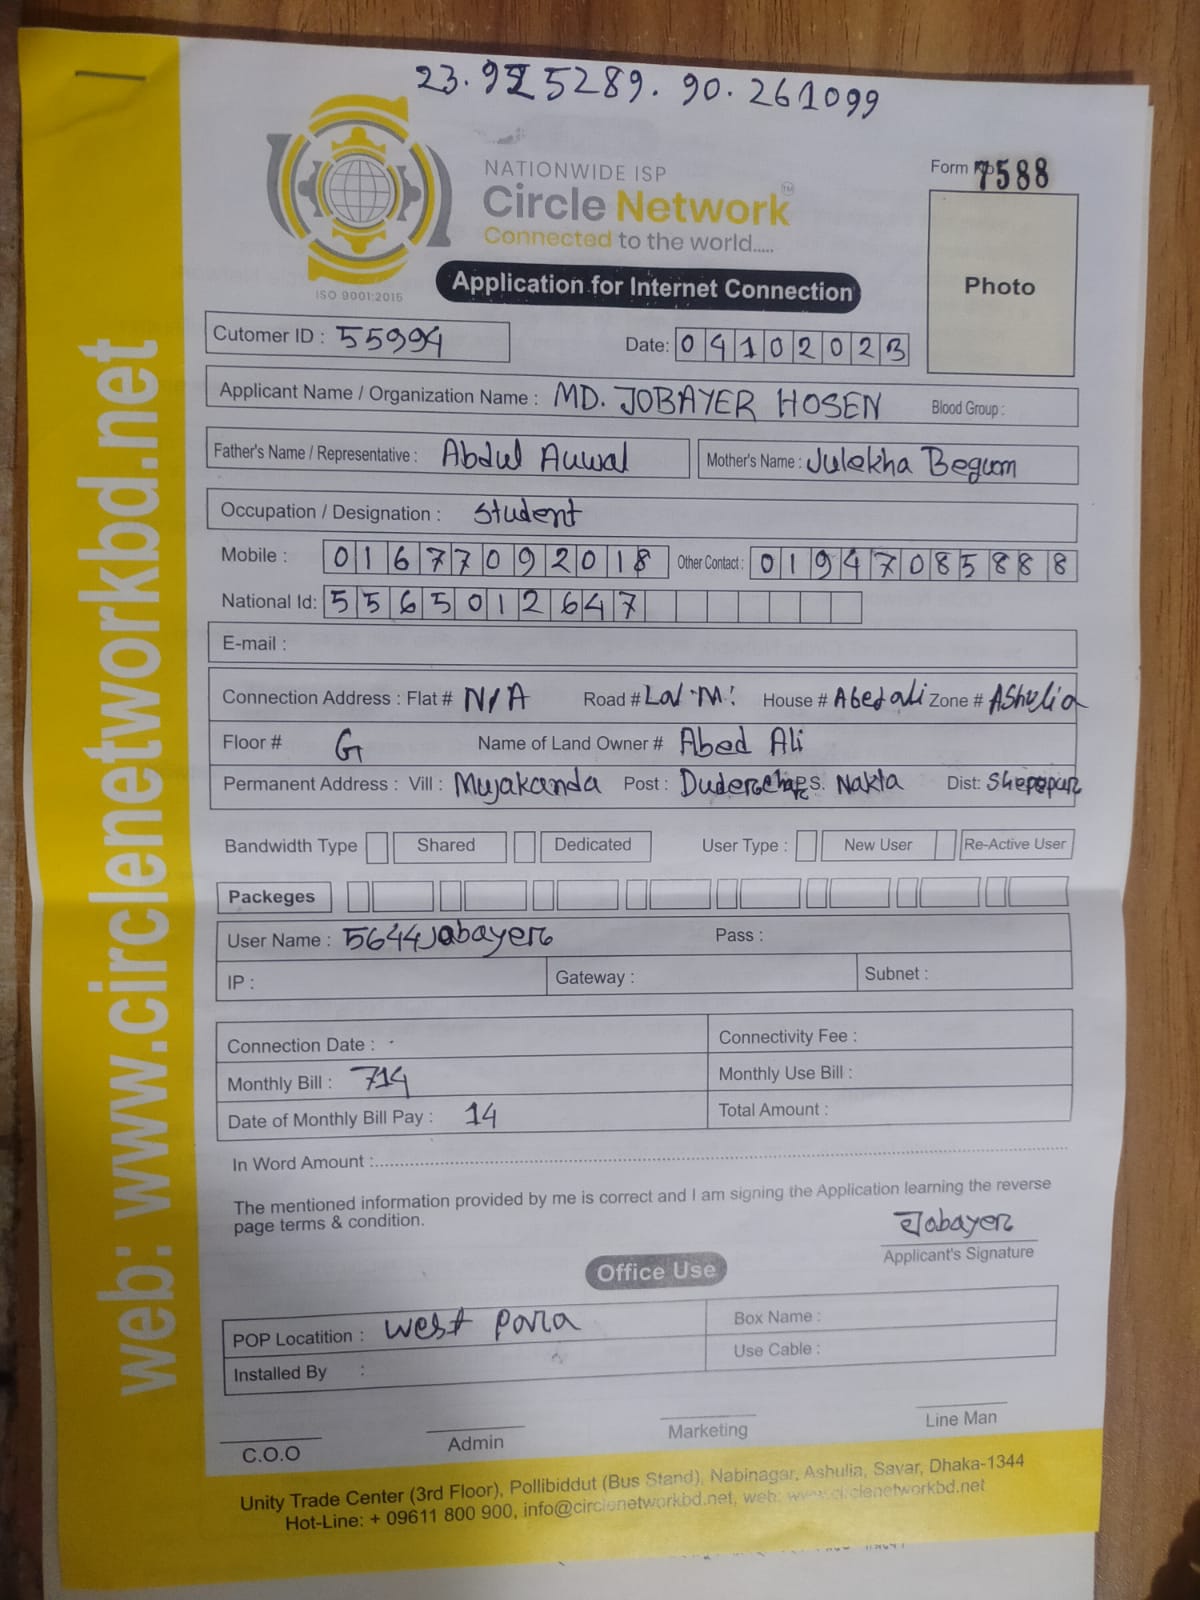 23.925289. 90.261099
NATIONWIDE ISP
Circle Network™
Connected to the world.....
ISO 9001:2015
Form No 7588
Photo
Application for Internet Connection
Cutomer ID : 55994 Date: 04102023
Applicant Name / Organization Name : MD. JOBAYER HOSEN Blood Group :
Father's Name / Representative : Abdul Auwal Mother's Name : Julekha Begum
Occupation / Designation : Student
Mobile : 01677092018 Other Contact : 01947085888
National Id: 5565012647
E-mail :
Connection Address : Flat # N/A Road # House # Abed ali Zone # AShulia
Floor # G Name of Land Owner # Abed Ali
Permanent Address : Vill : Mujakanda Post : P.S. Nakla Dist: Sherepur
Bandwidth Type Shared Dedicated User Type : New User Re-Active User
Packeges
User Name : 5644Jobayer Pass :
IP : Gateway : Subnet :
Connection Date : Connectivity Fee :
Monthly Bill : 714 Monthly Use Bill :
Date of Monthly Bill Pay : 14 Total Amount :
In Word Amount :
The mentioned information provided by me is correct and I am signing the Application learning the reverse
page terms & condition.
Jobayer
Applicant's Signature
Office Use
POP Locatition : West para Box Name :
Installed By : Use Cable :
C.O.O Admin Marketing Line Man
Unity Trade Center (3rd Floor), Pollibiddut (Bus Stand), Nabinagar, Ashulia, Savar, Dhaka-1344
Hot-Line: + 09611 800 900, info@circlenetworkbd.net, web: www.circlenetworkbd.net
web: www.circlenetworkbd.net